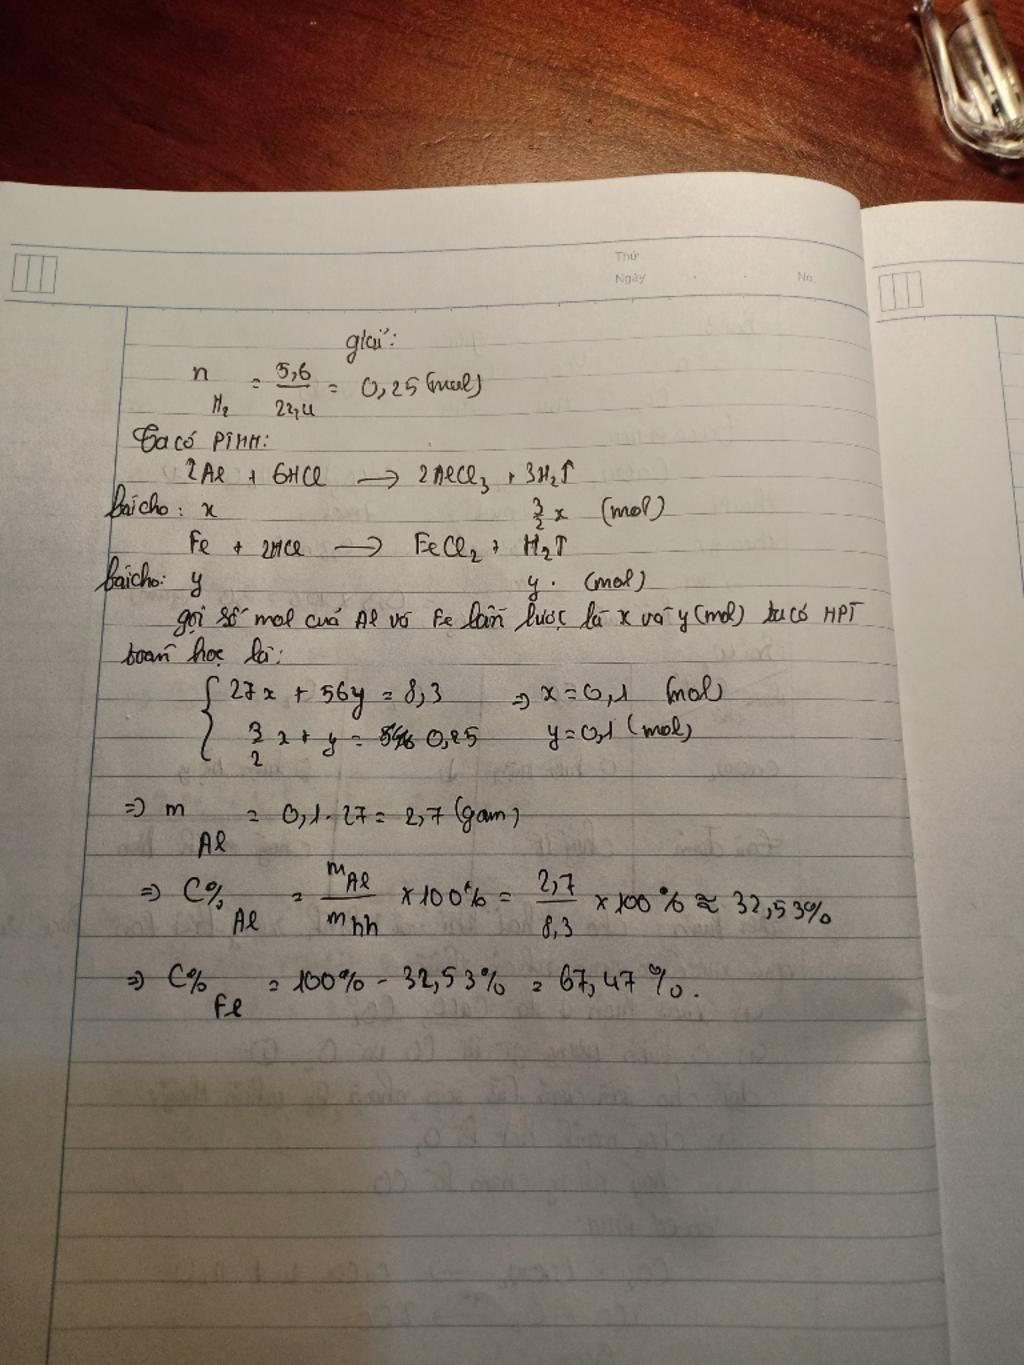 Thứ
Ngày . . No
giải:
n H₂ = 5,6/22,4 = 0,25 (mol)
Ta có PTHH:
2Al + 6HCl → 2AlCl₃ + 3H₂↑
bài cho: x 3/2 x (mol)
Fe + 2HCl → FeCl₂ + H₂↑
bài cho: y y . (mol)
gọi số mol của Al và Fe lần lược là x và y (mol) ta có HPT
toán học là:
{ 27x + 56y = 8,3 ⇒ x = 0,1 (mol)
3/2 x + y = 0,25 y = 0,1 (mol)
⇒ m Al = 0,1 . 27 = 2,7 (gam)
⇒ C% Al = mAl/mhh × 100% = 2,7/8,3 × 100% ≈ 32,53%
⇒ C% Fe = 100% - 32,53% = 67,47%.